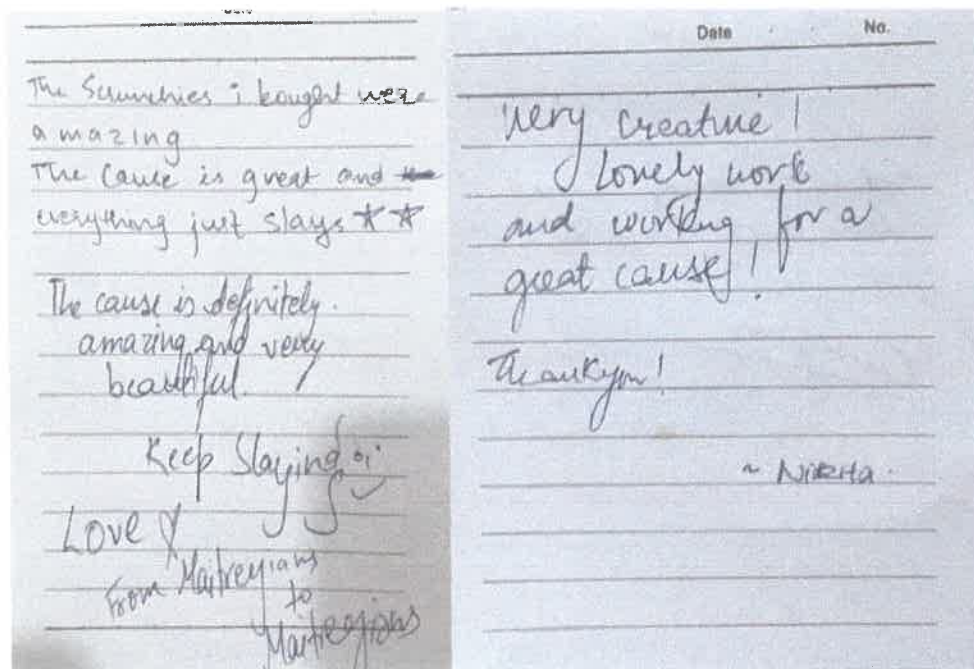 The Scrunchies i bought were
amazing
The Cause is great and
everything just slays ★ ★
The cause is definitely
amazing and very
beautiful.
Keep Slaying
Love
From Maitreyians
to
Maitreyians
Date No.
Very Creative!
Lovely work
and working for a
great cause!
Thankyou!
~ Nikita.